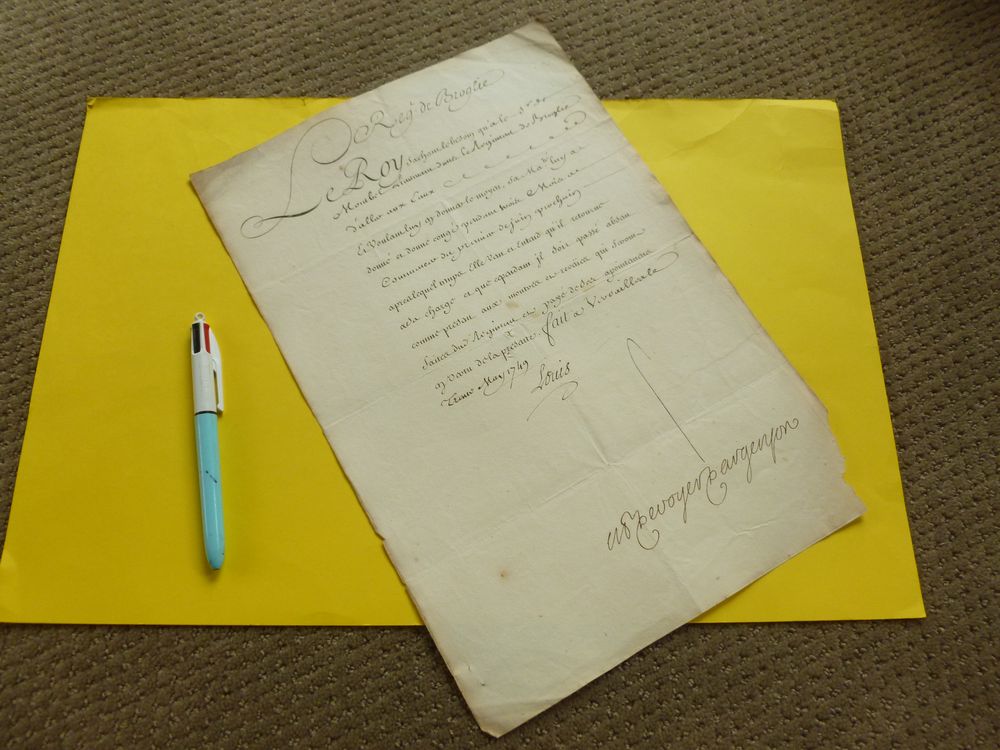 Reg.t de Broglie
Le Roy sachant le besoin qu'a le S.r de
Lieutenant dans le Regiment de Broglie
d'aller aux Eaux
Et Voulant luy en donner le moyen, Sa Ma.té luy a
donné et donne congé pendant trois Mois a
Commencer du premier de Juin prochain
apres lequel temps Elle veut et Entend qu'il retourne
a sa charge et que cependant il soit passé absent
comme présent aux montres et reveües qui seront
faites dud. Regiment et payé de ses apointemens
en vertu de la présente fait a Versailles le
Trente May 1749
Louis
M. P. De voyer D'argenson